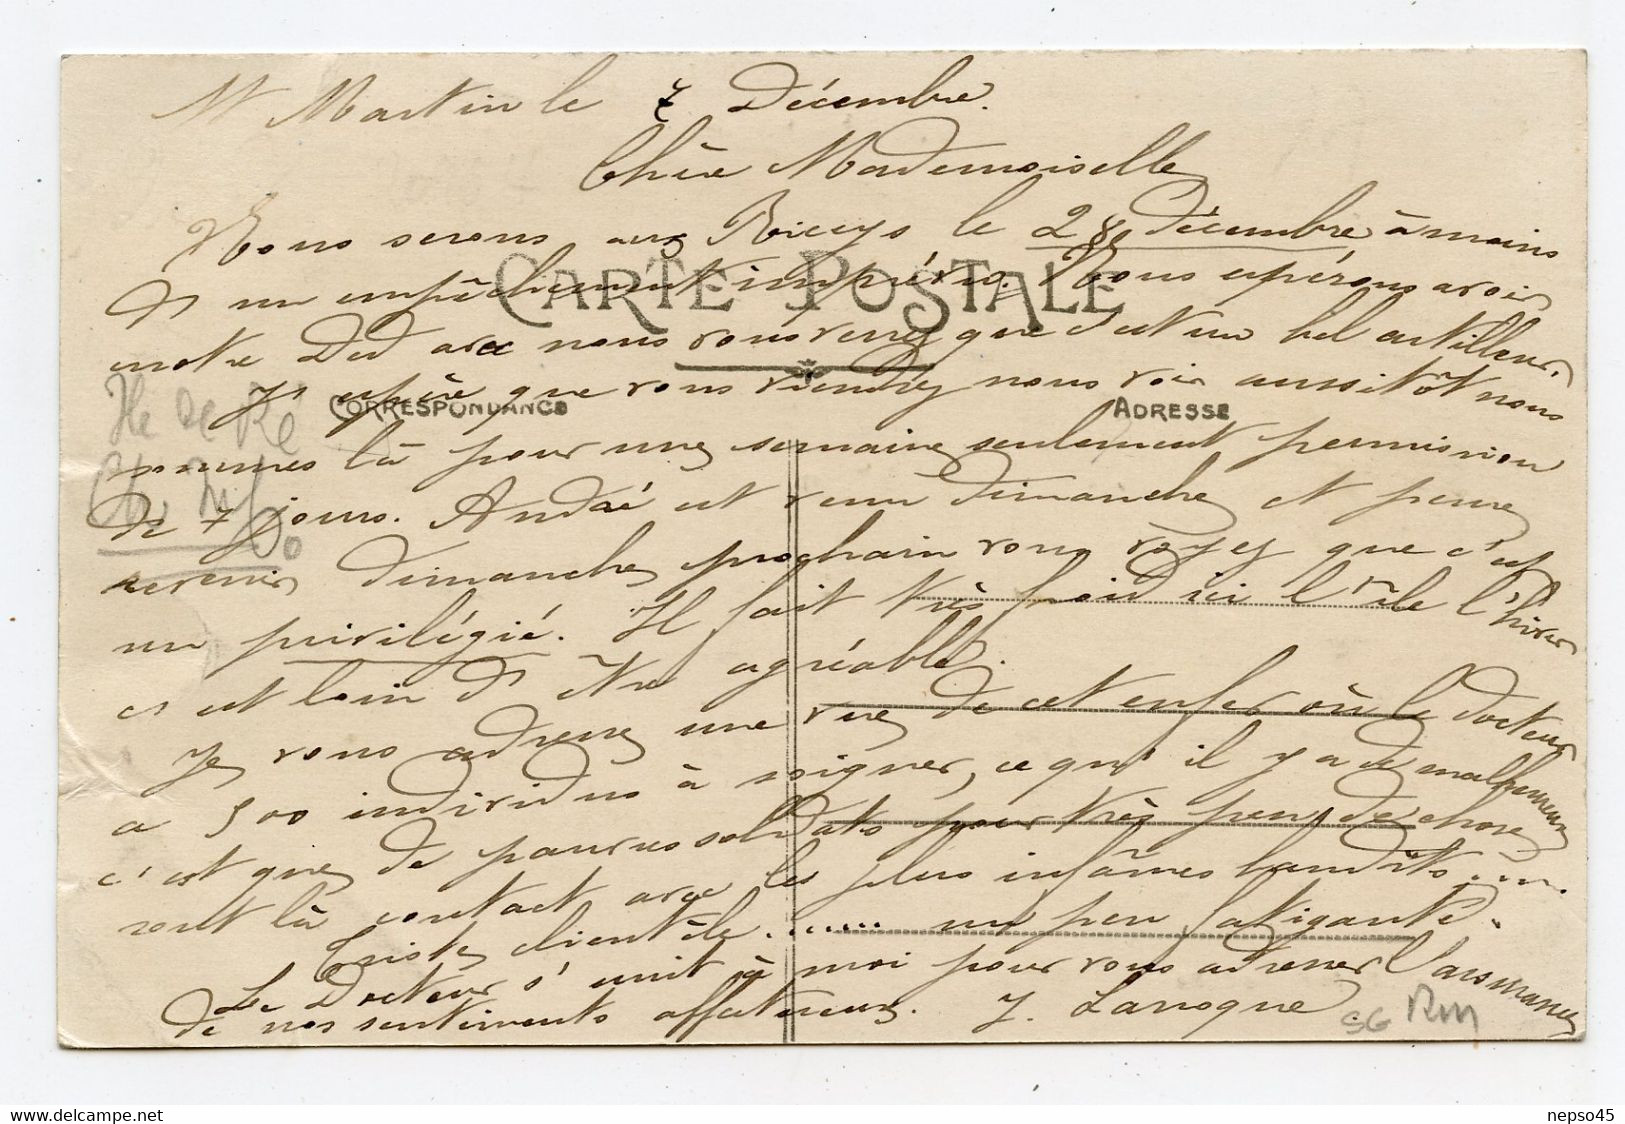 St Martin le 7 Décembre.
Chère Mademoiselle
Nous serons aux Riceys le 28 décembre à moins
d'un empêchement imprévu. Nous espérons avoir
CARTE POSTALE
notre Ded avec nous vous verrez que c'est un bel artilleur.
J'espère que vous viendrez nous voir aussitôt nous
CORRESPONDANCE ADRESSE
Ile de Ré
sommes là pour une semaine seulement permission
de 7 jours. André est venu dimanche et pense
revenir dimanche prochain vous voyez que c'est
un privilégié. Il fait très froid ici l'île l'hiver
c'est loin d'être agréable.
Je vous adresse une vue de cet enfer où le docteur
a 500 individus à soigner, ce qu'il y a de malheureux
c'est que de pauvres soldats pour très peu de chose
sont là contact avec les plus infâmes bandits.....
triste clientèle....... un peu fatigante.
Le Docteur s'unit à moi pour vous adresser l'assurance
de nos sentiments affectueux. J. Laroque
SG RM
nepso45